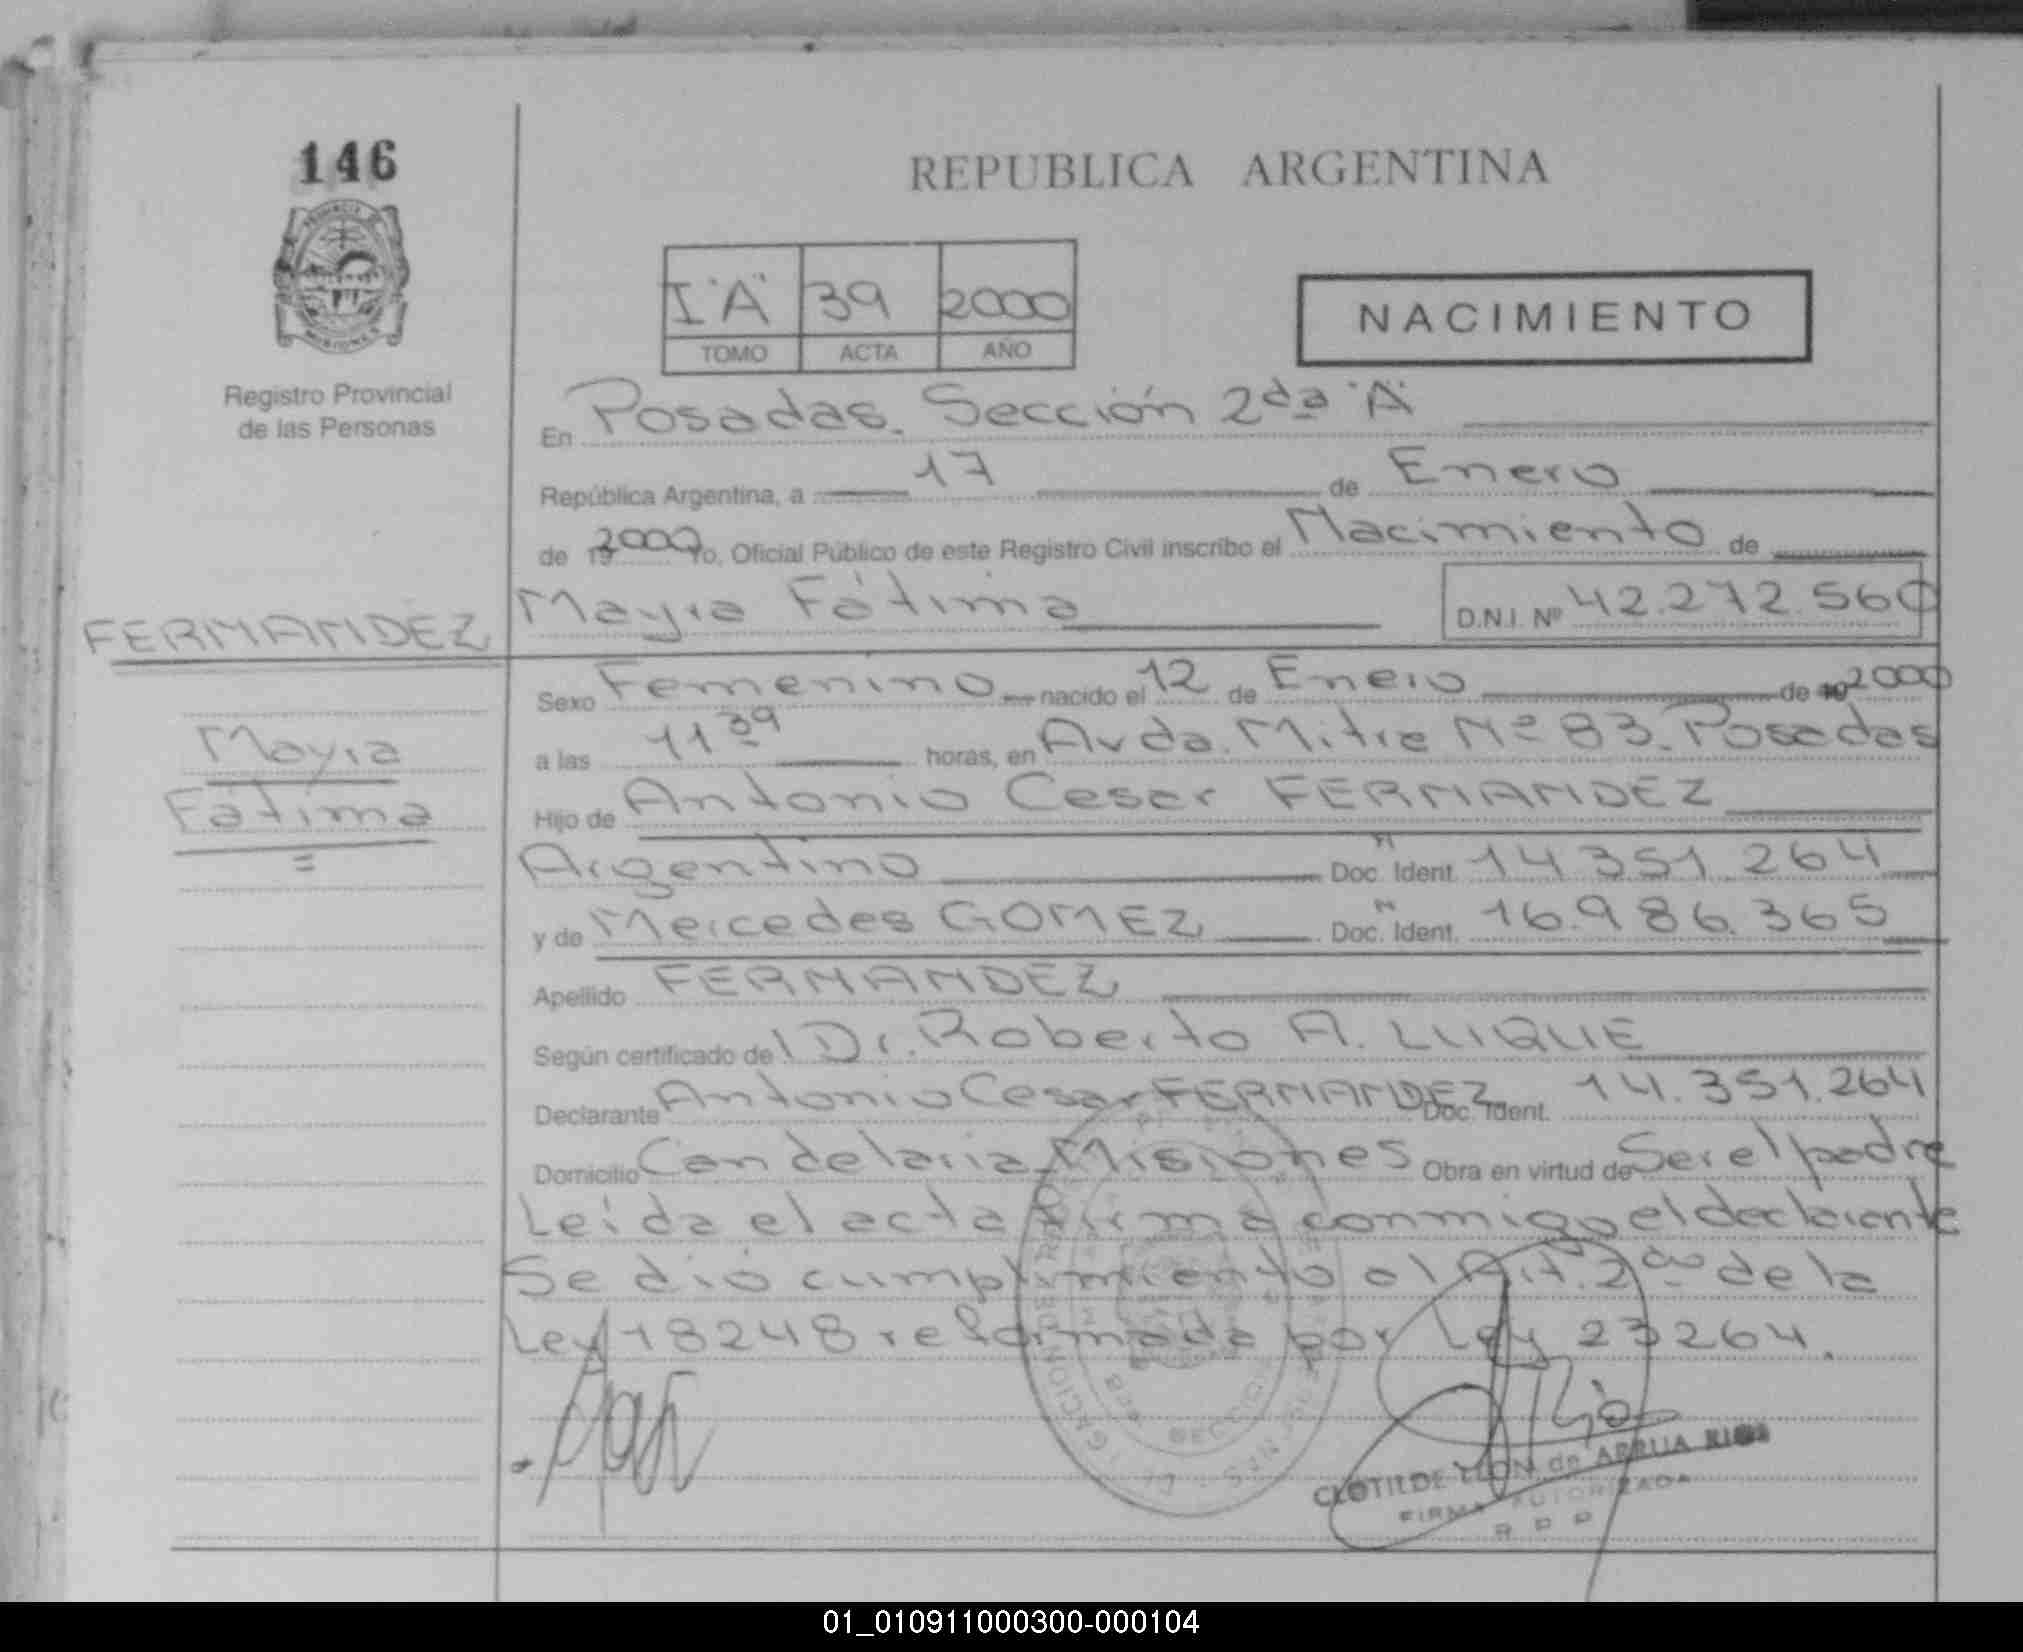 146
Registro Provincial
de las Personas
FERNANDEZ
Mayra
Fátima
REPUBLICA ARGENTINA
I "A" 39 2000
TOMO ACTA AÑO
NACIMIENTO
En Posadas. Sección 2da "A"
República Argentina, a 17 de Enero
de 2000 Yo, Oficial Público de este Registro Civil inscribo el Nacimiento de
Mayra Fátima D.N.I. Nº 42.272.560
Sexo Femenino nacido el 12 de Enero de 2000
a las 11 39 horas, en Avda. Mitre Nº 83. Posadas
Hijo de Antonio Cesar FERNANDEZ
Argentino Doc. Ident. 14.351.264
y de Mercedes GOMEZ Doc. Ident. 16.986.365
Apellido FERNANDEZ
Según certificado de Dr. Roberto A. LUQUE
Declarante Antonio Cesar FERNANDEZ Doc. Ident. 14.351.264
Domicilio Candelaria Misiones Obra en virtud de Ser el padre
Leída el acta firma conmigo el declarante
Se dió cumplimiento al Art. 2do de la
Ley 18248 reformada por Ley 23264.
CLOTILDE LEON de ARRUA RIOS
FIRMA AUTORIZADA
R P P
01_010911000300-000104